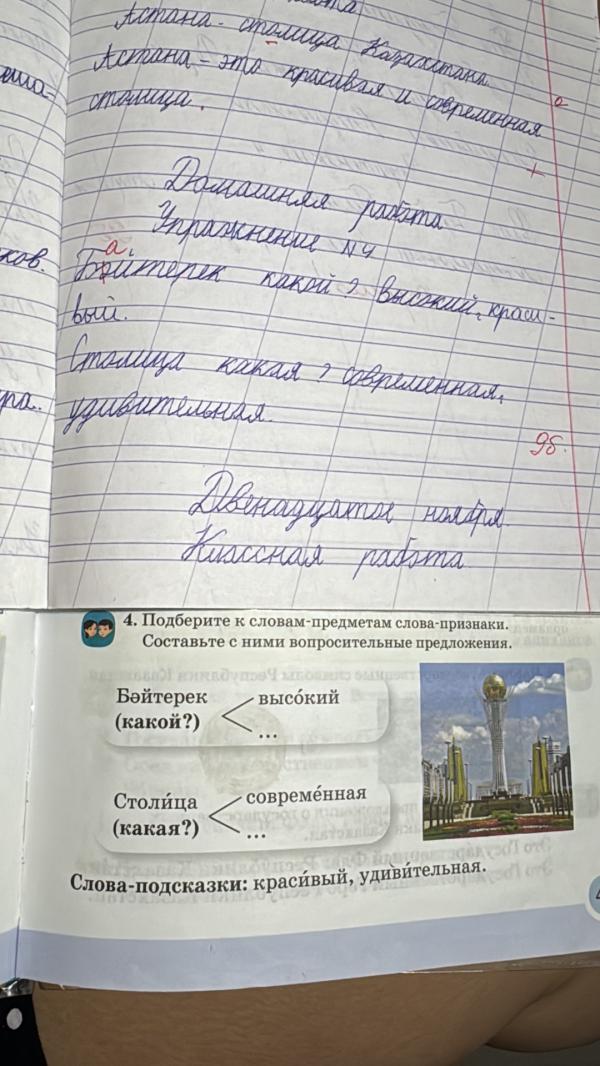 Астана - столица Казахстана
Астана - это красивая и современная
столица.
Домашняя работа
Упражнение №4
а
Бәйтерек какой? высокий, краси-
вый.
Столица какая? современная,
удивительная.
9б.
Двенадцатое ноября.
Классная работа
ков.
4. Подберите к словам-предметам слова-признаки.
Составьте с ними вопросительные предложения.
Бәйтерек
(какой?)
высо́кий
...
Столи́ца
(какая?)
совреме́нная
...
Слова-подсказки: краси́вый, удиви́тельная.